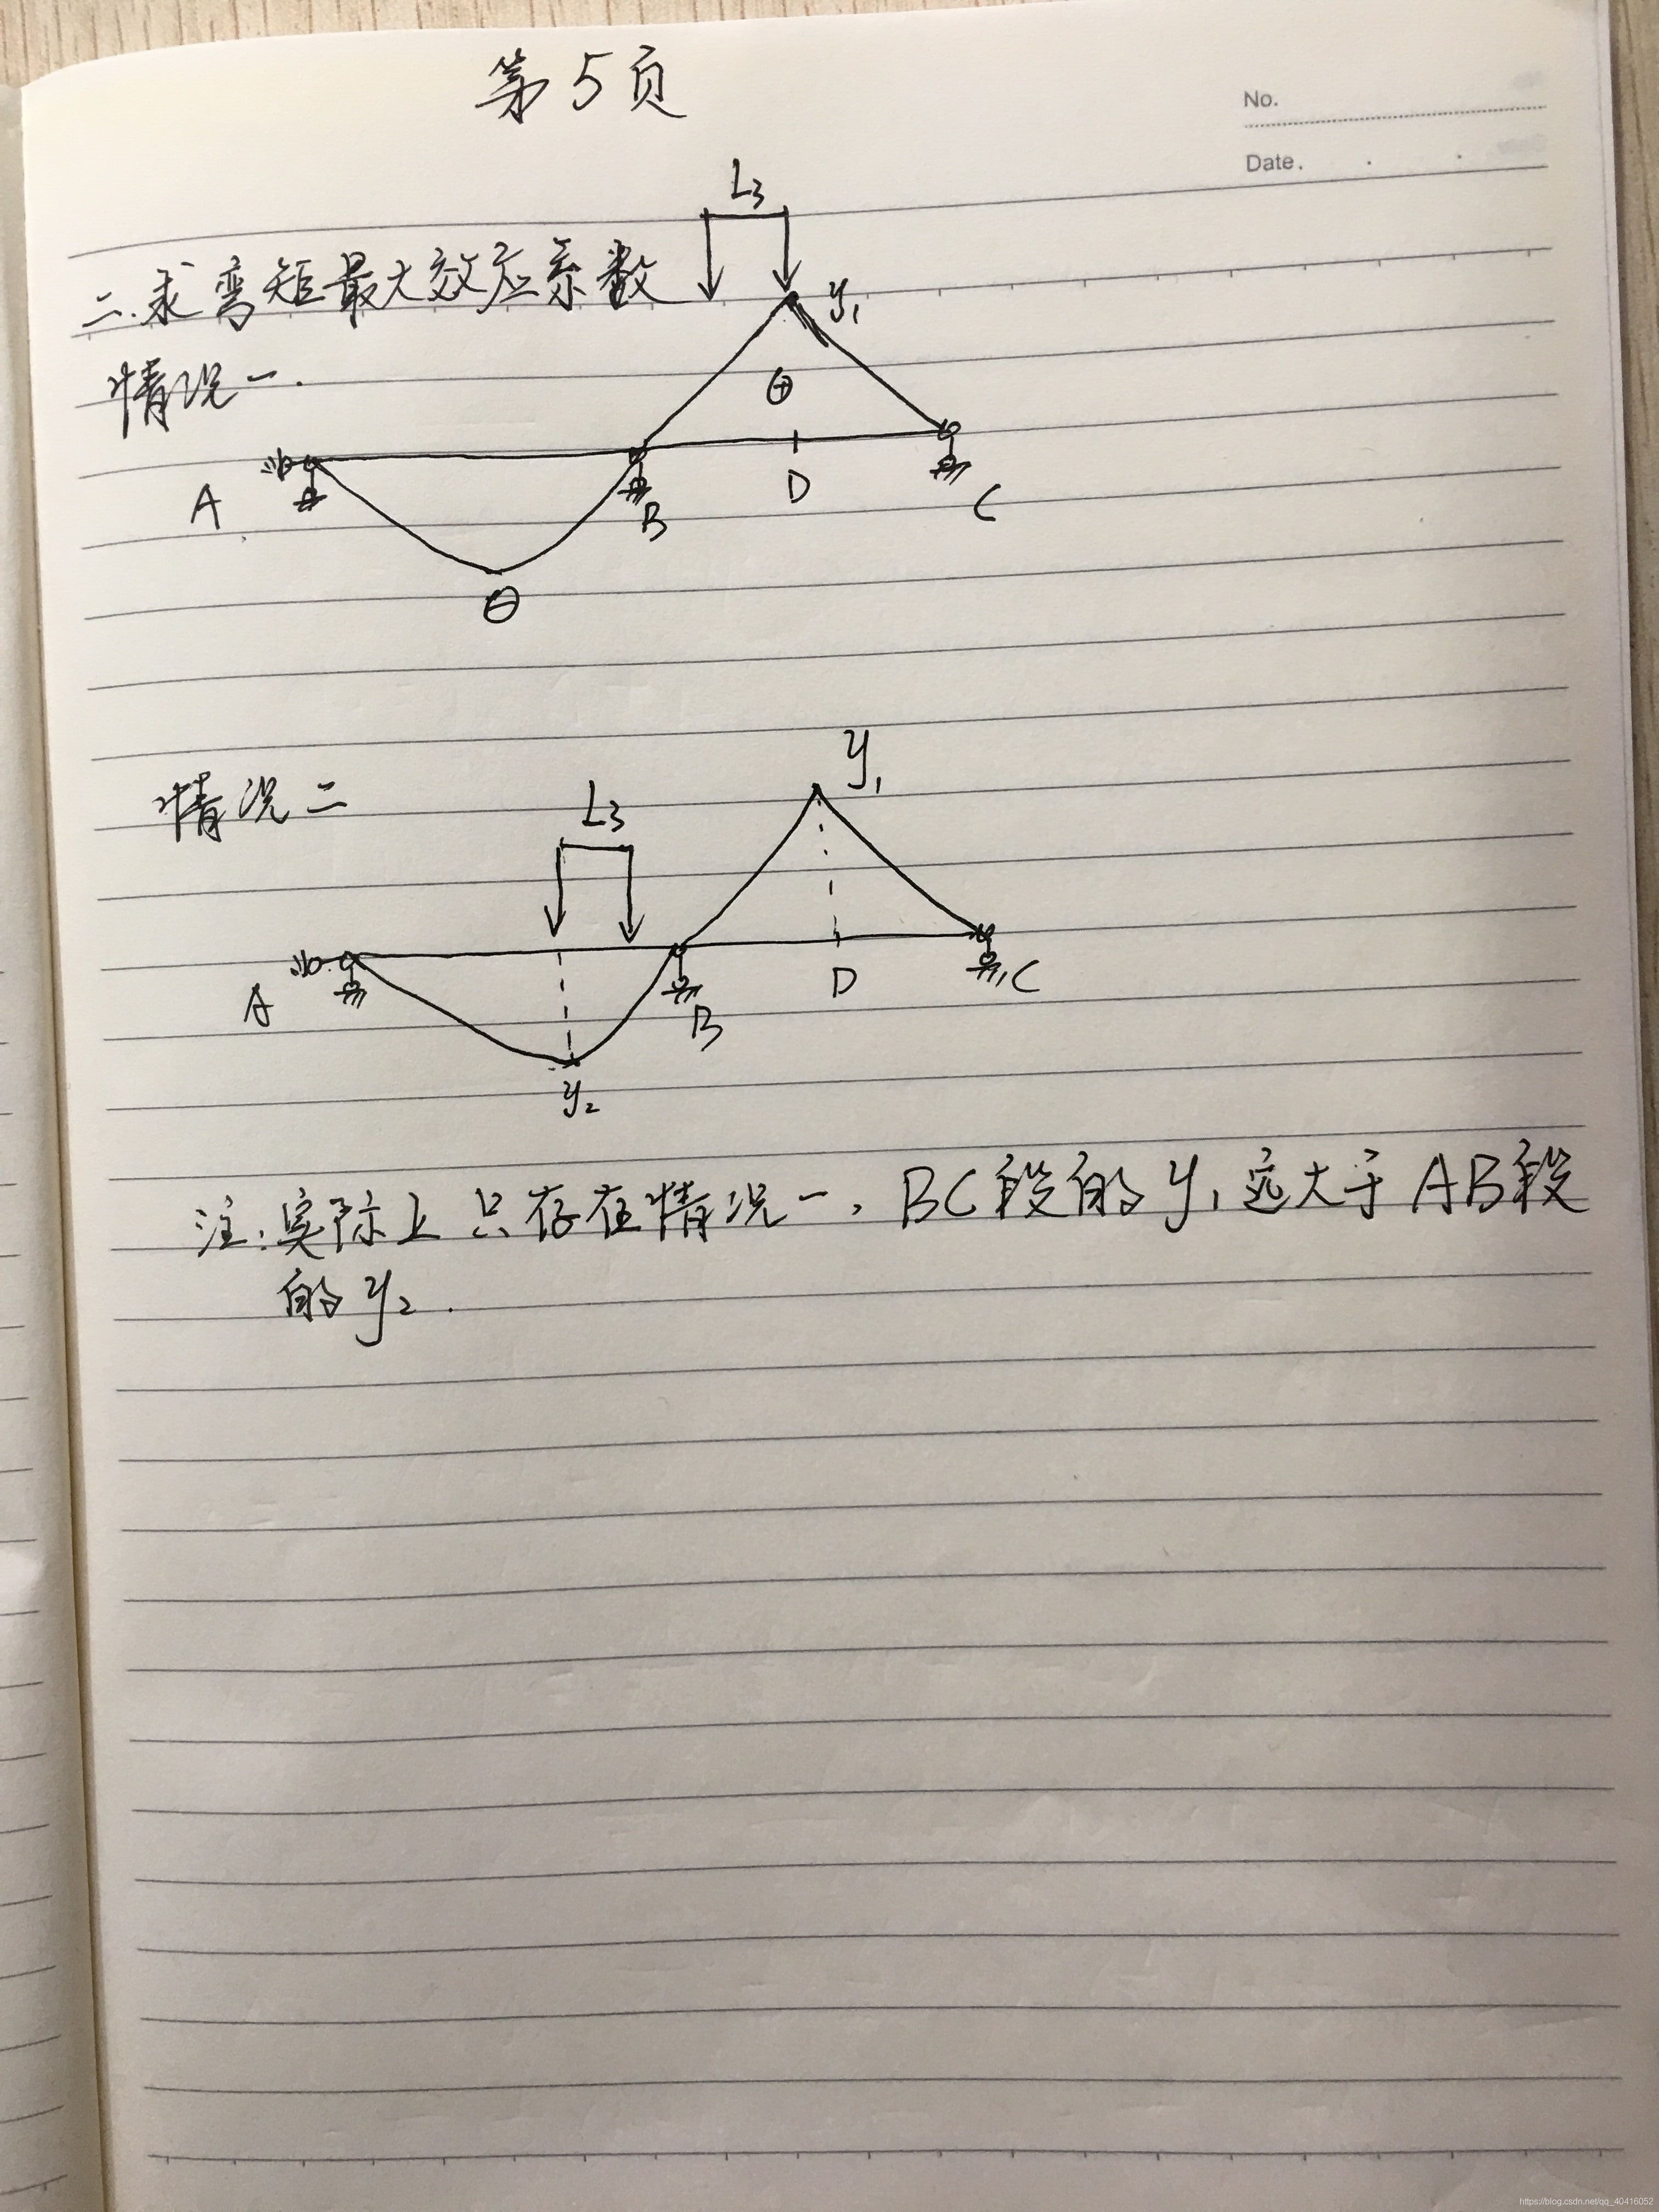 第5页
No.
Date.
L3
二.求弯矩最大效应系数
y1
情况一.
⊕
A
B
D
C
⊖
y1
情况二
L3
A
B
D
C
y2
注:实际上只存在情况一,BC段的y1远大于AB段
的y2.
https://blog.csdn.net/qq_40416052